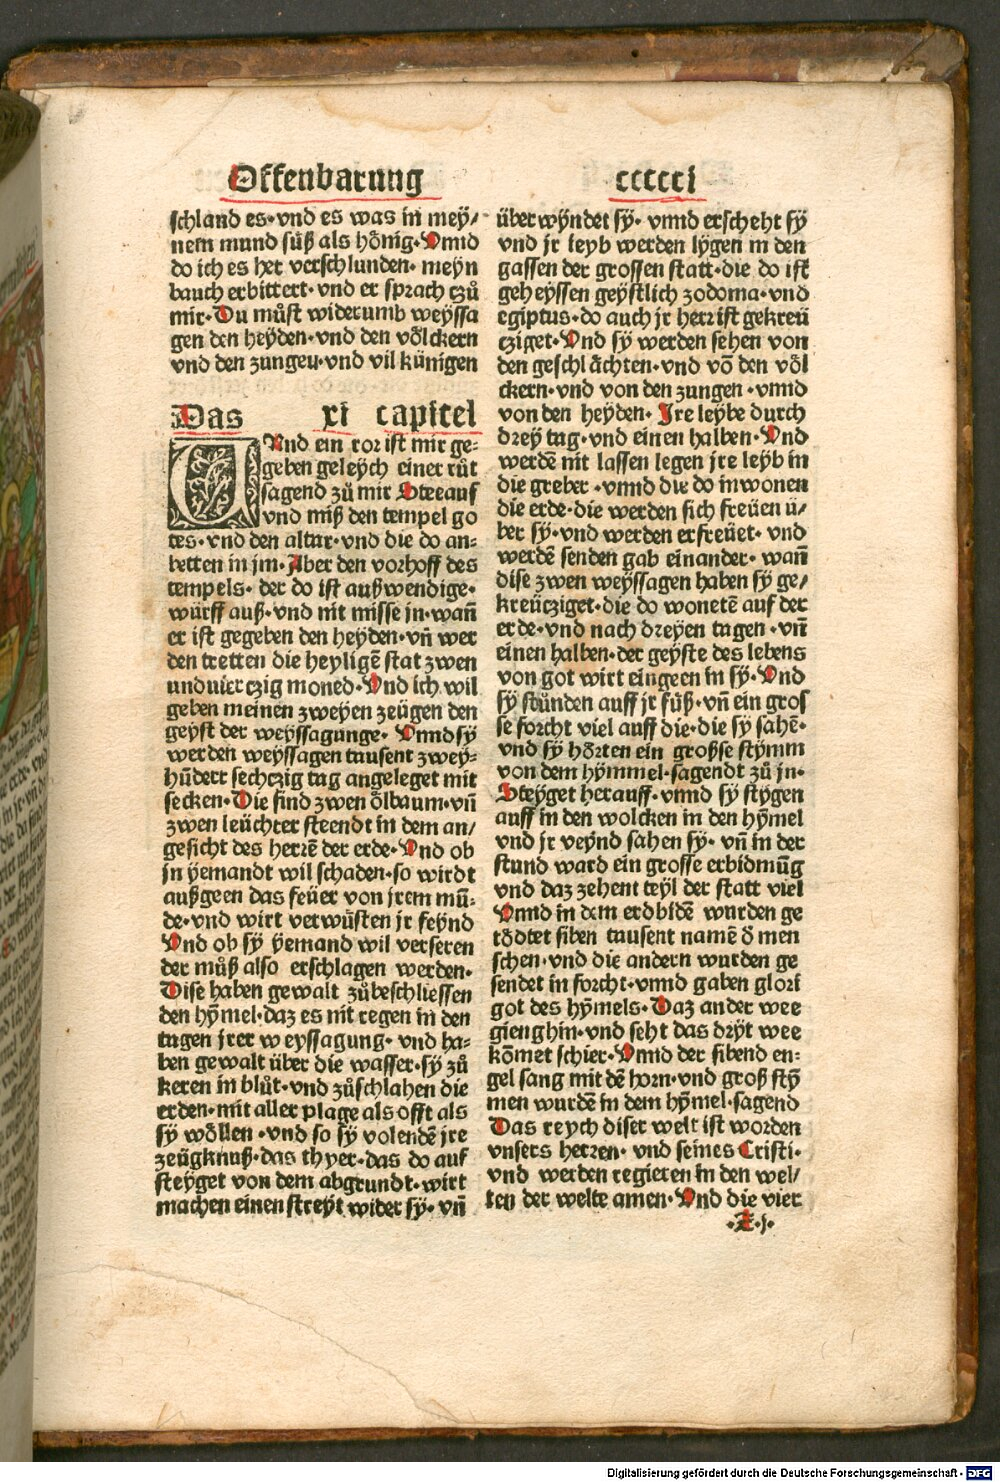 Offenbarung
ccccci
schland es·vnd es was in mey/
nem mund süß als hönig·Vnnd
do ich es het verschlunden·meyn
bauch erbittert·vnd er sprach czů
mir·Du můst widerumb weyssa
gen den heyden·vnd den völckern
vnd den zungeu·vnd vil künigen
Das xi capitel
UNd ein ror ist mir ge-
geben geleych einer růt
sagend zů mir Steeauf
vnd miß den tempel go
tes·vnd den altar·vnd die do an-
betten in jm·Aber den vorhoff des
tempels·der do ist außwendige·
würff auß·vnd nit misse jn·wañ
er ist gegeben den heyden·vñ wer
den tretten die heyligē stat zwen
undvierczig moned·Vnd ich wil
geben meinen zweyen zeügen den
geyst der weyssagunge·Vnnd sy
werden weyssagen tausent zwey-
hūdert sechczig tag angeleget mit
secken·Die sind zwen ölbaum·vñ
zwen leüchter steendt in dem an/
gesicht des herrē der erde·Vnd ob
jn yemandt wil schaden·so wirdt
außgeen das feüer von jrem mū-
de·vnd wirt verwüsten jr feynd
Vnd ob sy yemand wil verseren
der můß also erschlagen werden·
Dise haben gewalt zůbeschliessen
den hȳmel·daz es nit regen in den
tagen jrer weyssagung·vnd ha-
ben gewalt über die wasser·sy zů
keren in blůt·vnd zůschlahen die
erden·mit aller plage als offt als
sy wöllen·vnd so sy volendē jre
zeügknuß·das thyer·das do auf
steyget von dem abgrundt·wirt
machen einen streyt wider sy·vñ
überwyndet sy·vnnd erscheht sy
vnd jr leyb werden lygen in den
gassen der grossen statt·die do ist
geheyssen geystlich zodoma·vnd
egiptus·do auch jr herr ist gekreü
cziget·Vnd sy werden sehen von
den geschlächten·vnd vō den völ
ckern·vnd von den zungen·vnnd
von den heyden·Ire leybe durch
drey tag·vnd einen halben·Vnd
werdē nit lassen legen jre leyb in
die greber·vnnd die do inwonen
die erde·die werden sich freüen ü/
ber sy·vnd werden erfreüet·vnd
werdē senden gab einander·wañ
dise zwen weyssagen haben sy ge/
kreücziget·die do wonetē auf der
erde·vnd nach dreyen tagen·vñ
einen halben·der geyste des lebens
von got wirt eingeen in sy·Vnd
sy stůnden auff jr füß·vñ ein gros
se forcht viel auff die·die sy sahē·
vnd sy hörten ein großse stymm
von dem hymmel·sagendt zů jn·
Steyget herauff·vnnd sy stygen
auff in den wolcken in den hȳmel
vnd jr veynd sahen sy·vñ in der
stund ward ein grosse erbidmūg
vnd daz zehent teyl der statt viel
Vnnd in dem erdbidē wurden ge
tödtet siben tausent namē ð men
schen·vnd die andern wurden ge
sendet in forcht·vnnd gaben glori
got des hȳmels·Daz ander wee
gienghin·vnd seht das dryt wee
kōmet schier·Vnnd der sibend en-
gel sang mit dē horn·vnd groß stȳ
men wurdē in dem hȳmel·sagend
Das reych diser welt ist worden
vnsers herren·vnd seines Cristi·
vnd werden regieren in den wel/
ten der welte amen·Vnd die vier
Digitalisierung gefördert durch die Deutsche Forschungsgemeinschaft - DFG